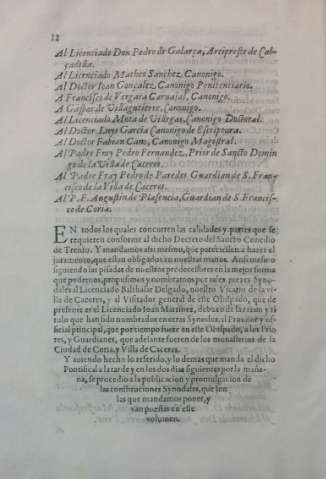 12
Al Licenciado Don Pedro de Galarça, Arcipreste de Calçadilla.
Al Licenciado Matheo Sanchez, Canonigo.
Al Doctor Ioan Gonçalez, Canonigo Penitenciario.
A Francisco de Vergara Carvajal, Canonigo.
A Gaspar de Villagutierre, Canonigo.
Al Licenciado Mota de Villegas, Canonigo Doctoral.
Al Doctor Luys Garcia Canonigo de Escriptura.
Al Doctor Fabian Cano, Canonigo Magistral.
Al Padre Fray Pedro Fernandez, Prior de Sancto Domin
go de la Villa de Caceres.
Al Padre Fray Pedro de Paredes Guardian de S. Fran-
cisco de la Villa de Caceres.
Al P. F. Augustin de Plasencia, Guardian de S. Francis-
co de Coria.
EN todos los quales concurren las calidades y partes que se
requieren conforme al dicho Decreto del Sancto Concilio
de Trento. Y mandamos assi mesmo, que parezcan a hazer el
juramento, que estan obligados en nuestras manos. Ansimesmo
siguiendo las pisadas de nuestros predecessores en la mejor forma
que podemos, proponemos y nombramos por juezes Syno-
dales al Licenciado Balthasar Delgado, nuestro Vicario de la vi-
lla de Caceres, y al Visitador general de este Obispado, que de
presente es el Licenciado Ioan Martinez, debaxo de
tulo que han sido nombrados en otras Synodos, al Provisor y of-
ficial principal, que por tiempo fuere en este Obispado, a los Prio-
res, y Guardianes, que adelante fueren de los monasterios de la
Ciudad de Coria, y Villa de Caceres.
Y auiendo hecho lo referido, y lo demas que manda el dicho
Pontifical a la tarde y en los dos dias siguientes por la maña-
na, se procedio a la publicacion y promulgacion de
las constituciones Synodales, que son
las que mandamos poner, y
van puestas en este
volumen.